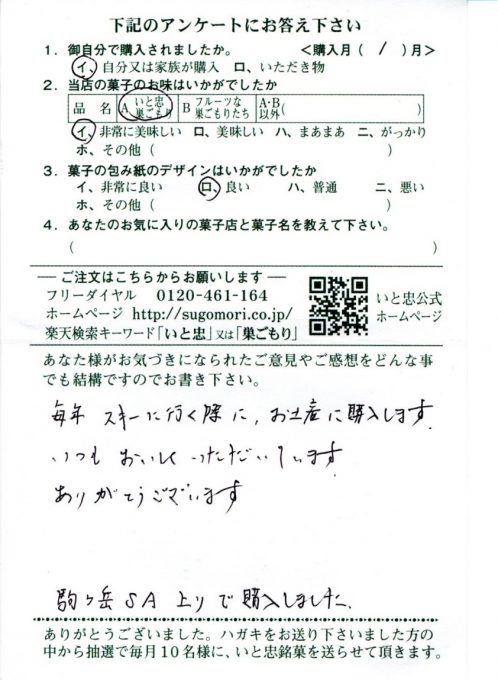 下記のアンケートにお答え下さい
1．御自分で購入されましたか。　＜購入月（ 1 ）月＞
イ、自分又は家族が購入　ロ、いただき物
2．当店の菓子のお味はいかがでしたか
品　名　A いと忠巣ごもり　B フルーツな巣ごもりたち　A·B以外（　　　）
イ、非常に美味しい　ロ、美味しい　ハ、まあまあ　ニ、がっかり
ホ、その他（　　　）
3．菓子の包み紙のデザインはいかがでしたか
イ、非常に良い　ロ、良い　ハ、普通　ニ、悪い
ホ、その他（　　　）
4．あなたのお気に入りの菓子店と菓子名を教えて下さい。
（　　　）
― ご注文はこちらからお願いします ―
フリーダイヤル　0120-461-164
ホームページ　http://sugomori.co.jp/
楽天検索キーワード「いと忠」又は「巣ごもり」
いと忠公式
ホームページ
あなた様がお気づきになられたご意見やご感想をどんな事
でも結構ですのでお書き下さい。
毎年 スキーに行く際に、お土産に購入します。
いつも おいしくいただいています
ありがとうございます
駒ヶ岳SA 上りで購入しました。
ありがとうございました。ハガキをお送り下さいました方の
中から抽選で毎月10名様に、いと忠銘菓を送らせて頂きます。